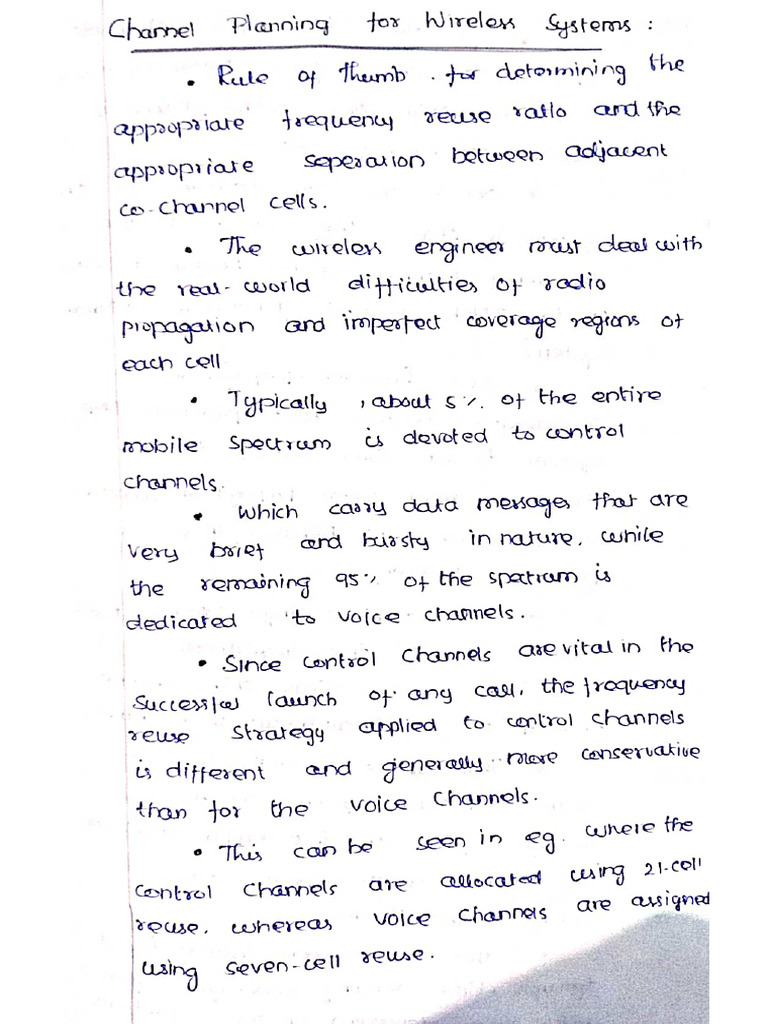 Channel Planning for Wireless Systems :
• Rule of Thumb . for determining the
appropriate frequency reuse ratio and the
appropriate seperation between adjacent
co-channel cells.
• The wireless engineer must deal with
the real-world difficulties of radio
propagation and imperfect coverage regions of
each cell
• Typically , about 5% of the entire
mobile spectrum is devoted to control
channels.
• which carry data messages that are
very brief and bursty in nature, while
the remaining 95% of the spectrum is
dedicated to voice channels.
• Since control channels are vital in the
successful launch of any call, the frequency
reuse strategy applied to control channels
is different and generally more conservative
than for the voice channels.
• This can be seen in eg. where the
control channels are allocated using 21-cell
reuse, whereas voice channels are assigned
using seven-cell reuse.